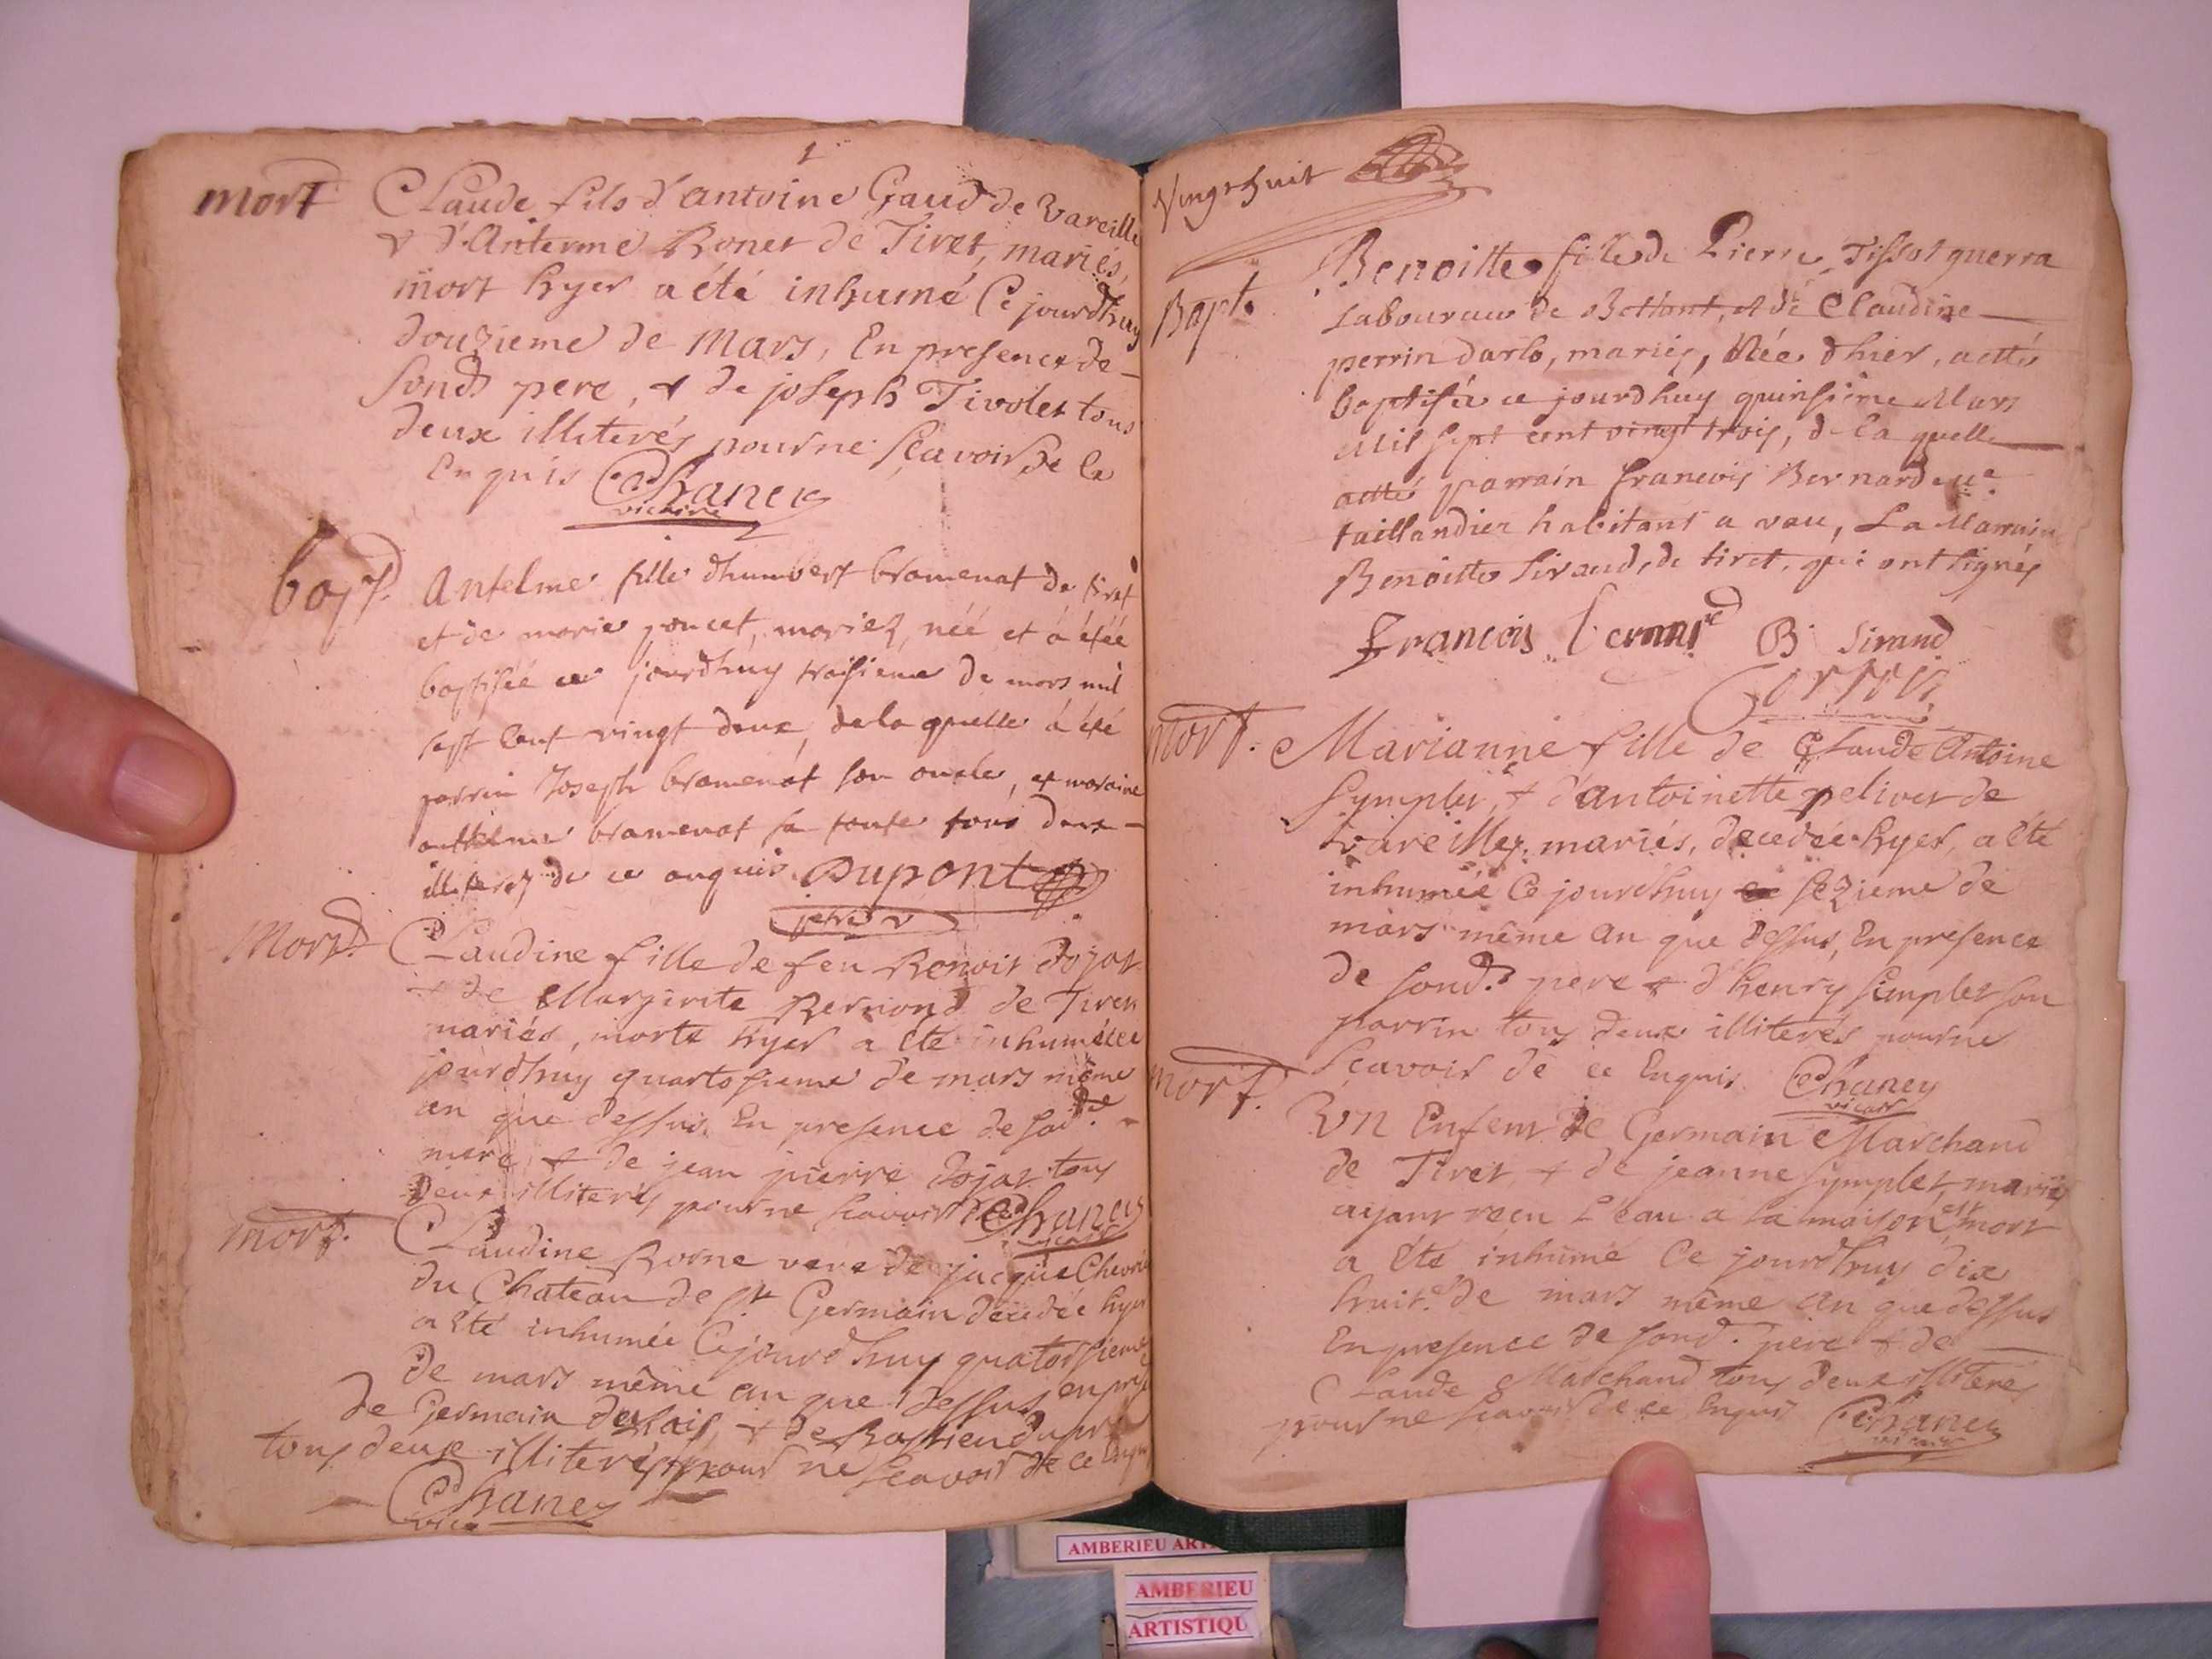 1
mort Claude fils d'antoine Gaud de Vareille
& d'Anterme Bonet de Tiret, mariés,
mort hyer a été inhumé Ce jourdhuy
douzieme de Mars, En presence de
sond pere, & de joseph Tivolet tous
deux illiterés pour ne sçavoir de ce
Enquis Chaney
vicaire
bapt. Antelme fille dhumbert bramenat de tiret
et de marie poncet, mariez, néé et á étéé
baptiséé ce jourdhuy traisieme de mars mil
sept cent vingt deux, de la quelle á été
parrin Joseph bramenat son oncle, et maraine
anthelme bramenat sa tante tous deux
illiterez de ce enquis Dupont
ptre
Mort. Claudine fille de feu Benoit Dojat
& de Margerite Bernond de Tiret
mariés, morte hyer a été inhumée ce
jourdhuy quartosieme de mars même
an que dessus. En presence de sad.
mere, & de jean pierre Dojat tous
deux illiterés pour ne scavoir Chaney
vicaire
mort. Claudine Borne veve de jacque
du Chateau de st Germain decedée hyer
a été inhumée Ce jourdhuy quatorsieme
de mars même an que dessus en
de Germain & de Bastien
tous deux illiterés pour ne scavoir de ce
Chaney
vic
Vingt huit
Bapt. Benoitte fille de Pierre Tissot guerra
Laboureur de Bettant, et de Claudine
perrin darlo, mariés, Née dhier, a etté
baptisée ce jourdhuy quinsieme Mars
Mil sept cent vingt trois, de la quelle
a etté parrain francois Bernard
taillandier habitant a vau, La Marraine
Benoitte Sirand, de tiret, qui ont signés
Francois bernard B Sirand
mort. Marianne fille de Claude Antoine
Symplet, & d'antoinette peliver de
Vareilles mariés, decedée hyer, a été
inhumée Ce jourdhuy sezieme de
mars même an que dessus, En presence
de sond. pere & d'henry simplet son
parrin tous deux illiterés pour ne
sçavoir de ce Enquis. Chaney
vicair
mort. Vn Enfent de Germain Marchand
de Tiret, & de jeanne symplet, mariés
ayant reçu L'eau a la maison, est mort
a été inhumé Ce jourdhuy dix
huit.e de mars même an que dessus
En presence de sond. pere & de
Claude Marchand tous deux illiterés
pour ne scavoir de ce Enquis Chaney
vicaire
AMBERIEU
AMBERIEU
ARTISTIQU